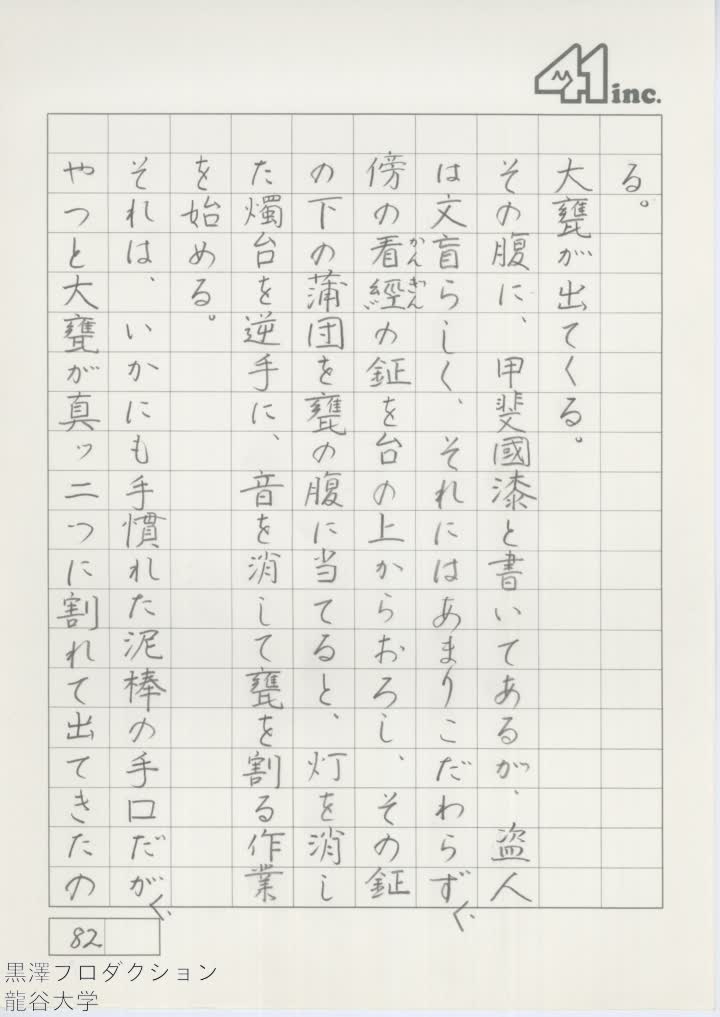 41 inc.
る。
大甕が出てくる。
その腹に、甲斐國漆と書いてあるが、盗人
は文盲らしく、それにはあまりこだわらず、
傍の看經の鉦を台の上からおろし、その鉦
かんきん
の下の蒲団を甕の腹に当てると、灯を消し
た燭台を逆手に、音を消して甕を割る作業
を始める。
それは、いかにも手慣れた泥棒の手口だが、
やつと大甕が真ッ二つに割れて出てきたの
82
黒澤プロダクション
龍谷大学